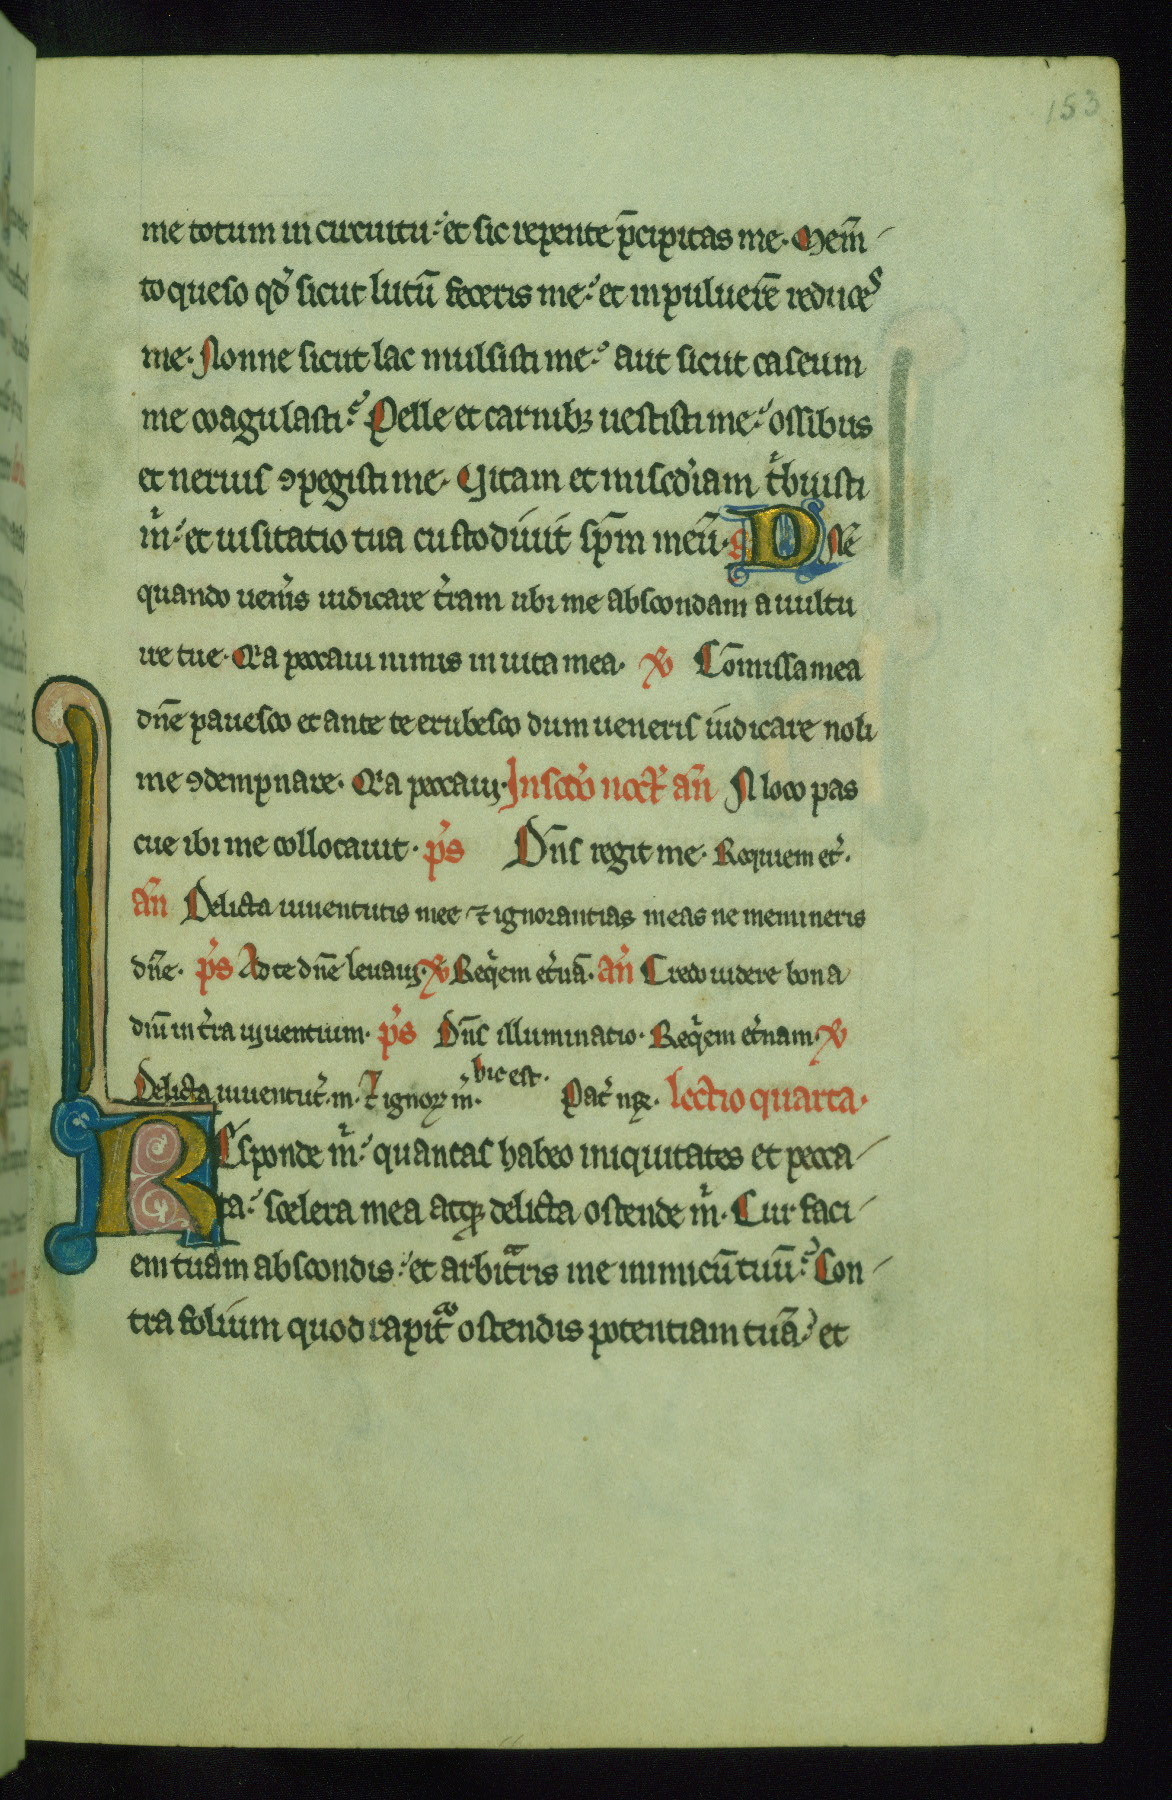 153
me totum in circuitu: et sic repente p̄cipitas me. Mem̄
to queso qd̓ sicut lutū feceris me: et in puluerē reduces
me. Nonne sicut lac mulsisti me: aut sicut caseum
me coagulasti: Pelle et carnibꝫ uestisti me: ossibus
et neruis ꝯpegisti me. Uitam et misc̓diam t̓buisti
m̓: et uisitatio tua custodiuit sp̄m meū. Dne
quando uen̓is iudicare t̓ram ubi me abscondam a uultu
ire tue. Q̓a peccaui nimis in uita mea. V̓ Cōmissa mea
dn̄e pauesco et ante te erubesco dum ueneris iudicare noli
me ꝯdempnare. Q̓a peccauj. In sc̄do noct̓ an̄ In loco pas
cue ibi me collocauit. p̓s Dn̄s regit me. Requiem et̓.
an̄ Delicta iuuentutis mee ⁊ ignorantias meas ne memineris
dn̄e. p̓s Ad te dn̄e leuauj. V̓ Reqͥem et̓nā. an̄ Credo uidere bona
dnī in t̓ra uiuentium. p̓s Dn̄s illuminatio. Reqͥem et̓nam. V̓
Delicta iuuentut̓. m. ⁊ ignorꝝ m̄. hic est. Pat̓ nr̄. lectio quarta.
REsponde m̓: quantas habeo iniquitates et pecca
ta: scelera mea atqꝫ delicta ostende m̓. Cur faci
em tuam abscondis: et arbitͣris me inimicū tuū: Con
tra folium quod rapitᷓ ostendis potentiam tuā: et